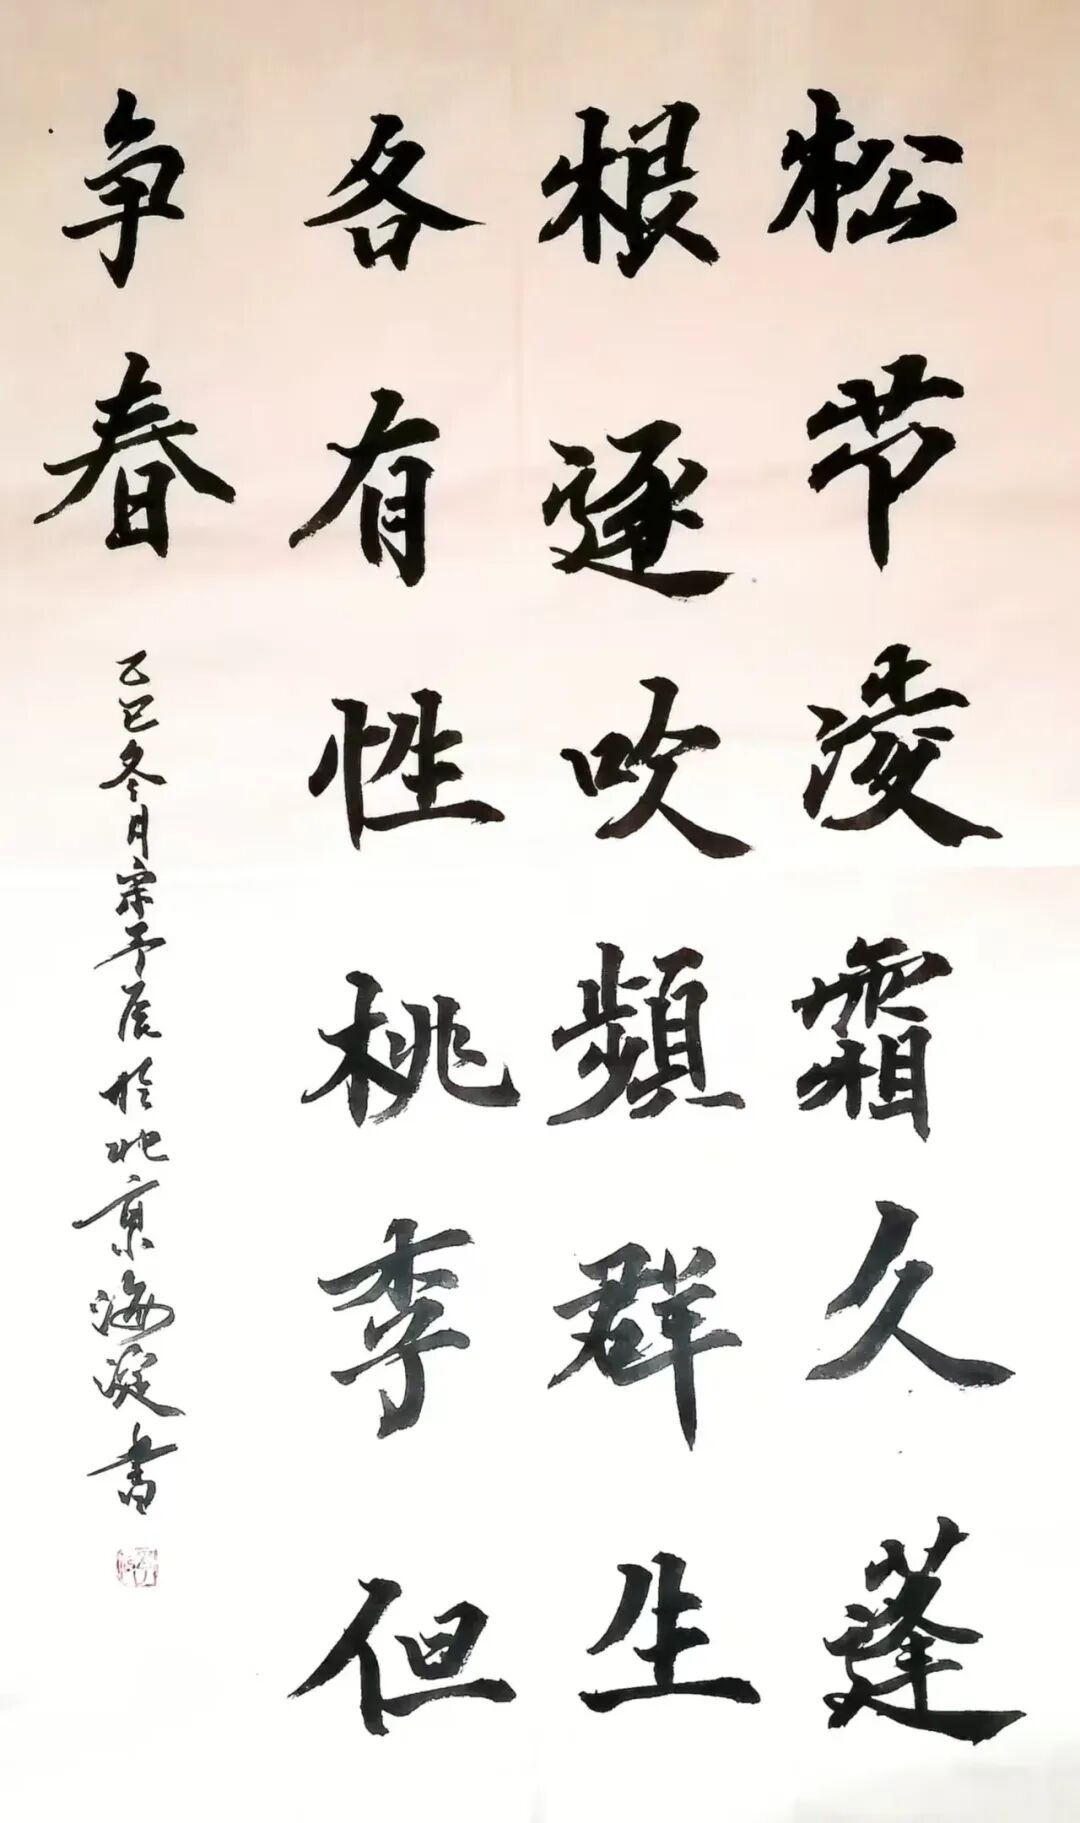 松节凌霜久蓬
根逐吹頻群生
各有性桃李但
争春
乙巳冬月宗予辰於北京海淀书